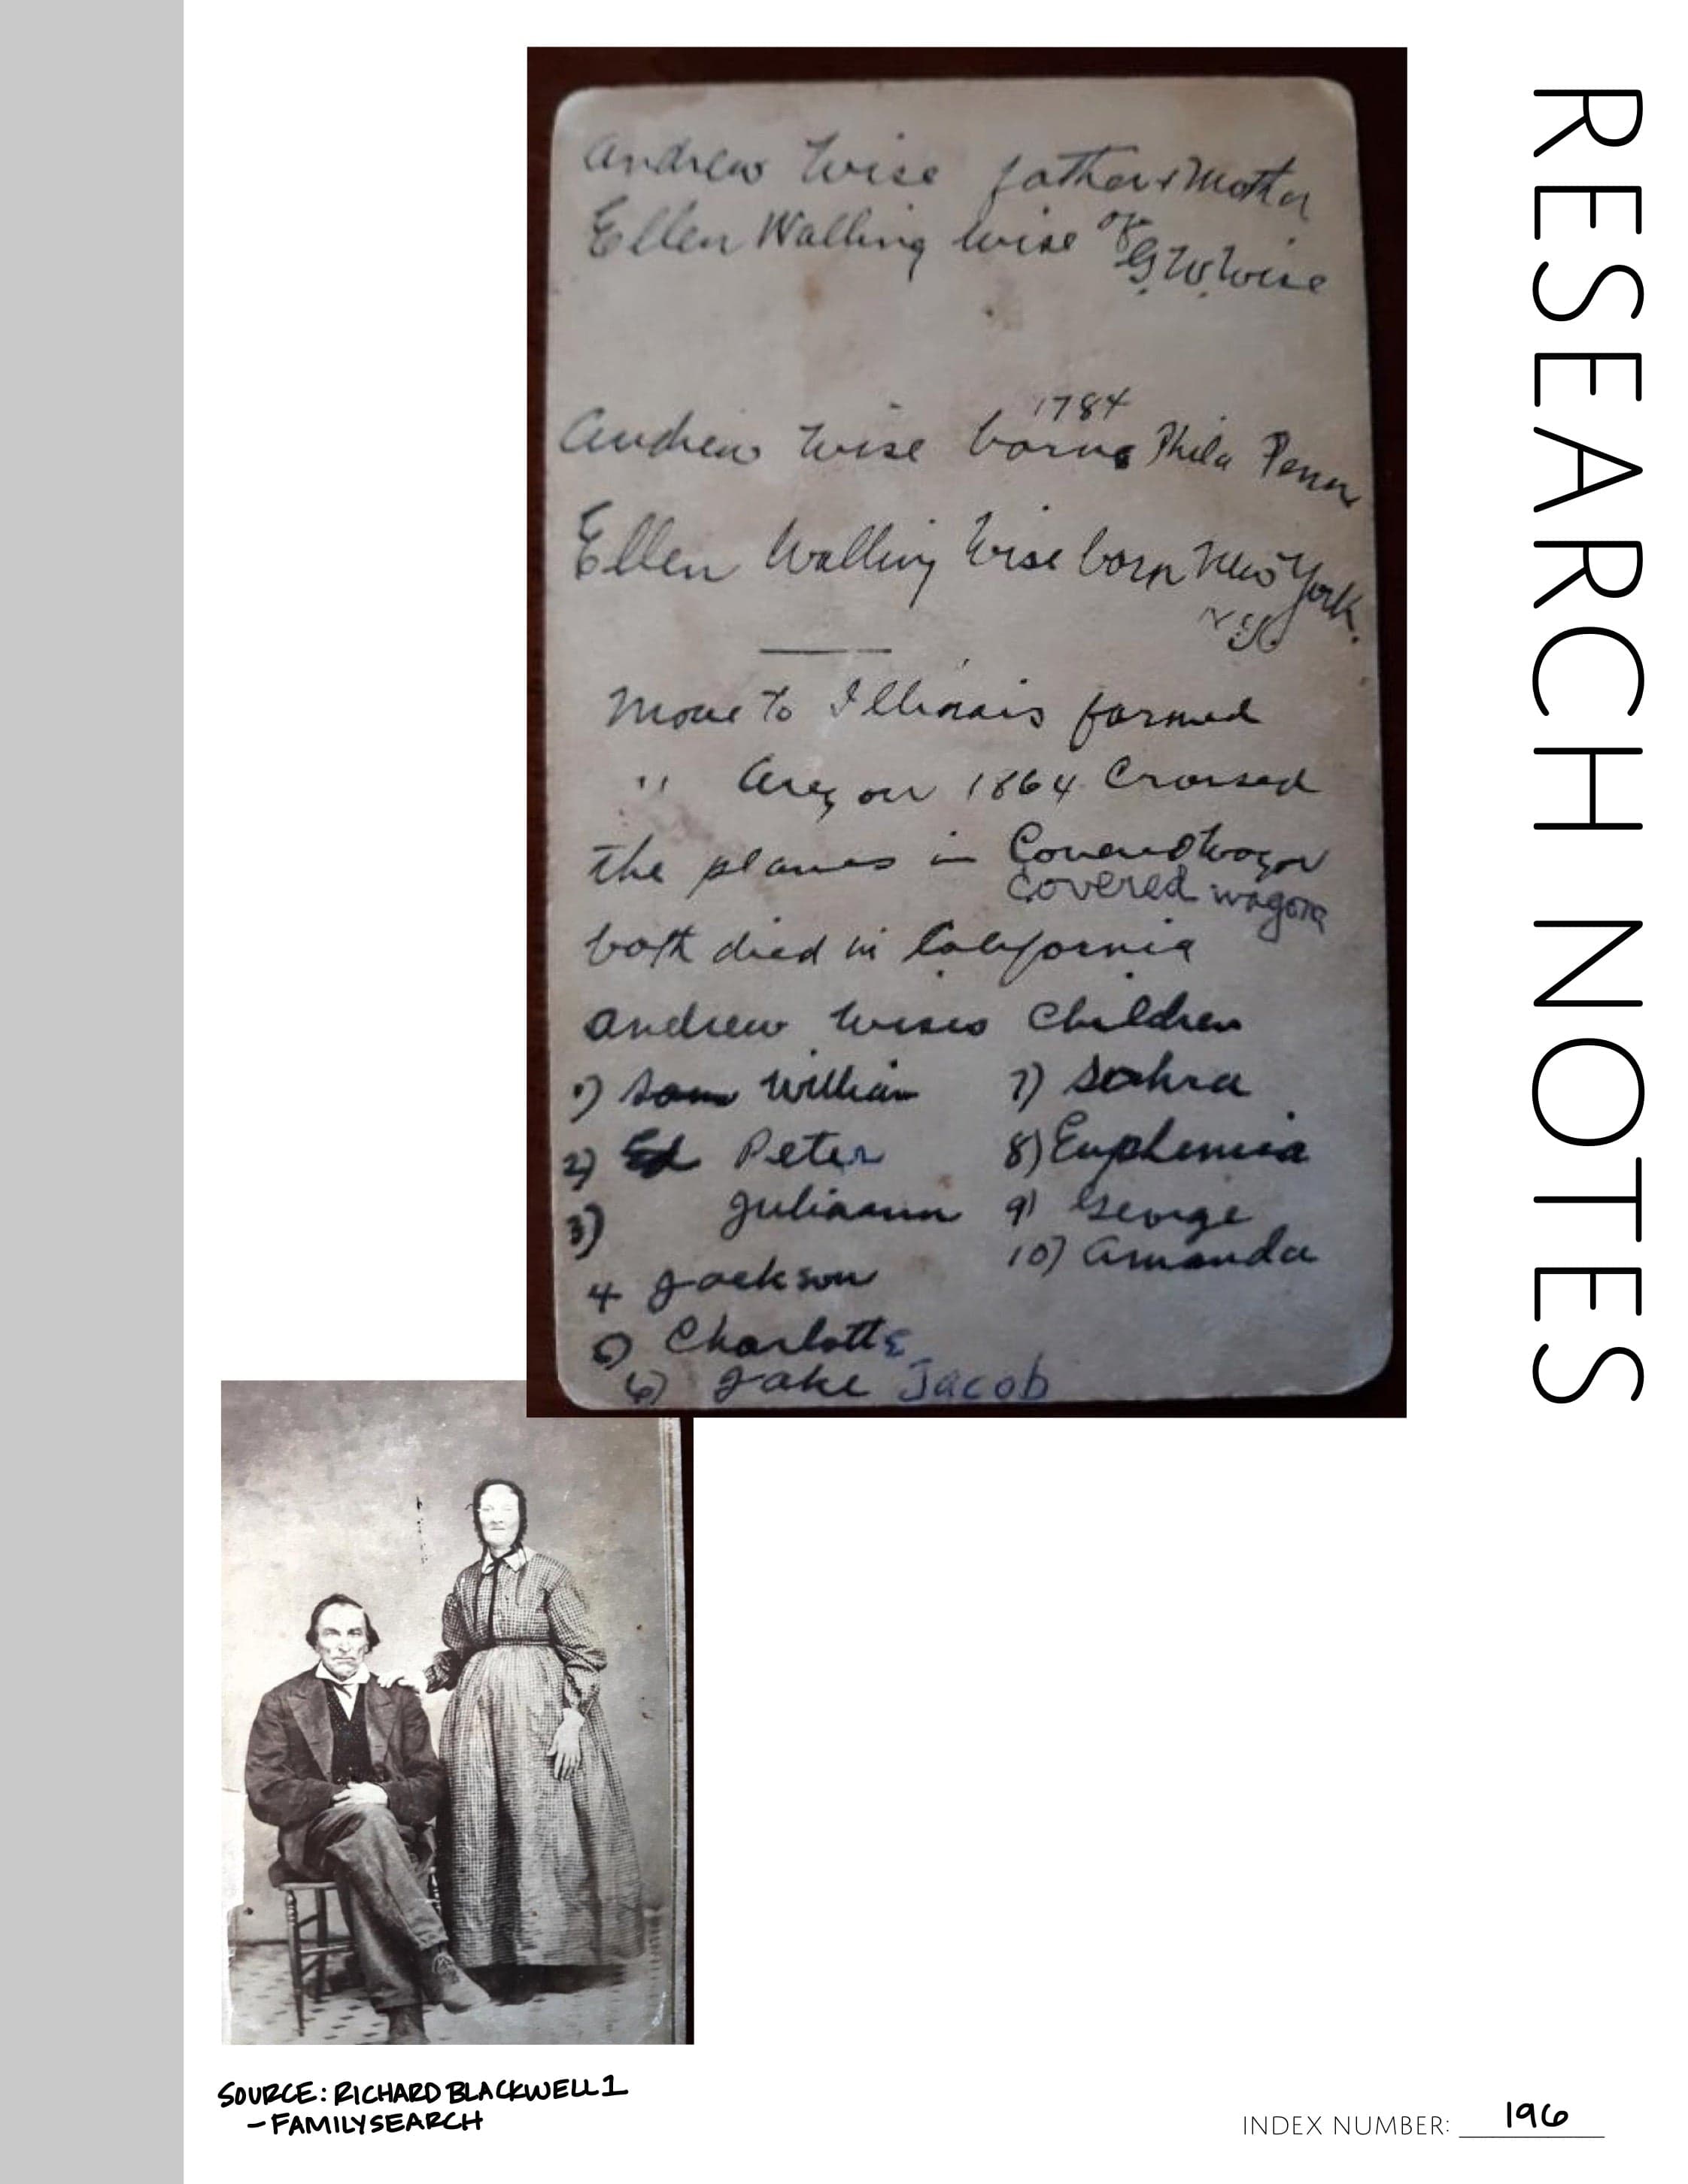 RESEARCH NOTES
Andrew Wise father & Mother
Ellen Walling Wise of
G. W. Wise
1784
Andrew Wise born Phila Penn
Ellen Walling Wise born New York.
N.Y.
Move to Illinois farmed
" Oregon 1864 Crossed
the planes in Covered Wagon
covered wagon
both died in California
Andrew Wises Children
1) Sam William
2) Ed Peter
3) Juliaann
4 Jackson
5) Charlotte
6) Jake Jacob
7) Sahra
8) Euphemia
9) George
10) Amanda
SOURCE: RICHARD BLACKWELL1
- FAMILYSEARCH
INDEX NUMBER: 196